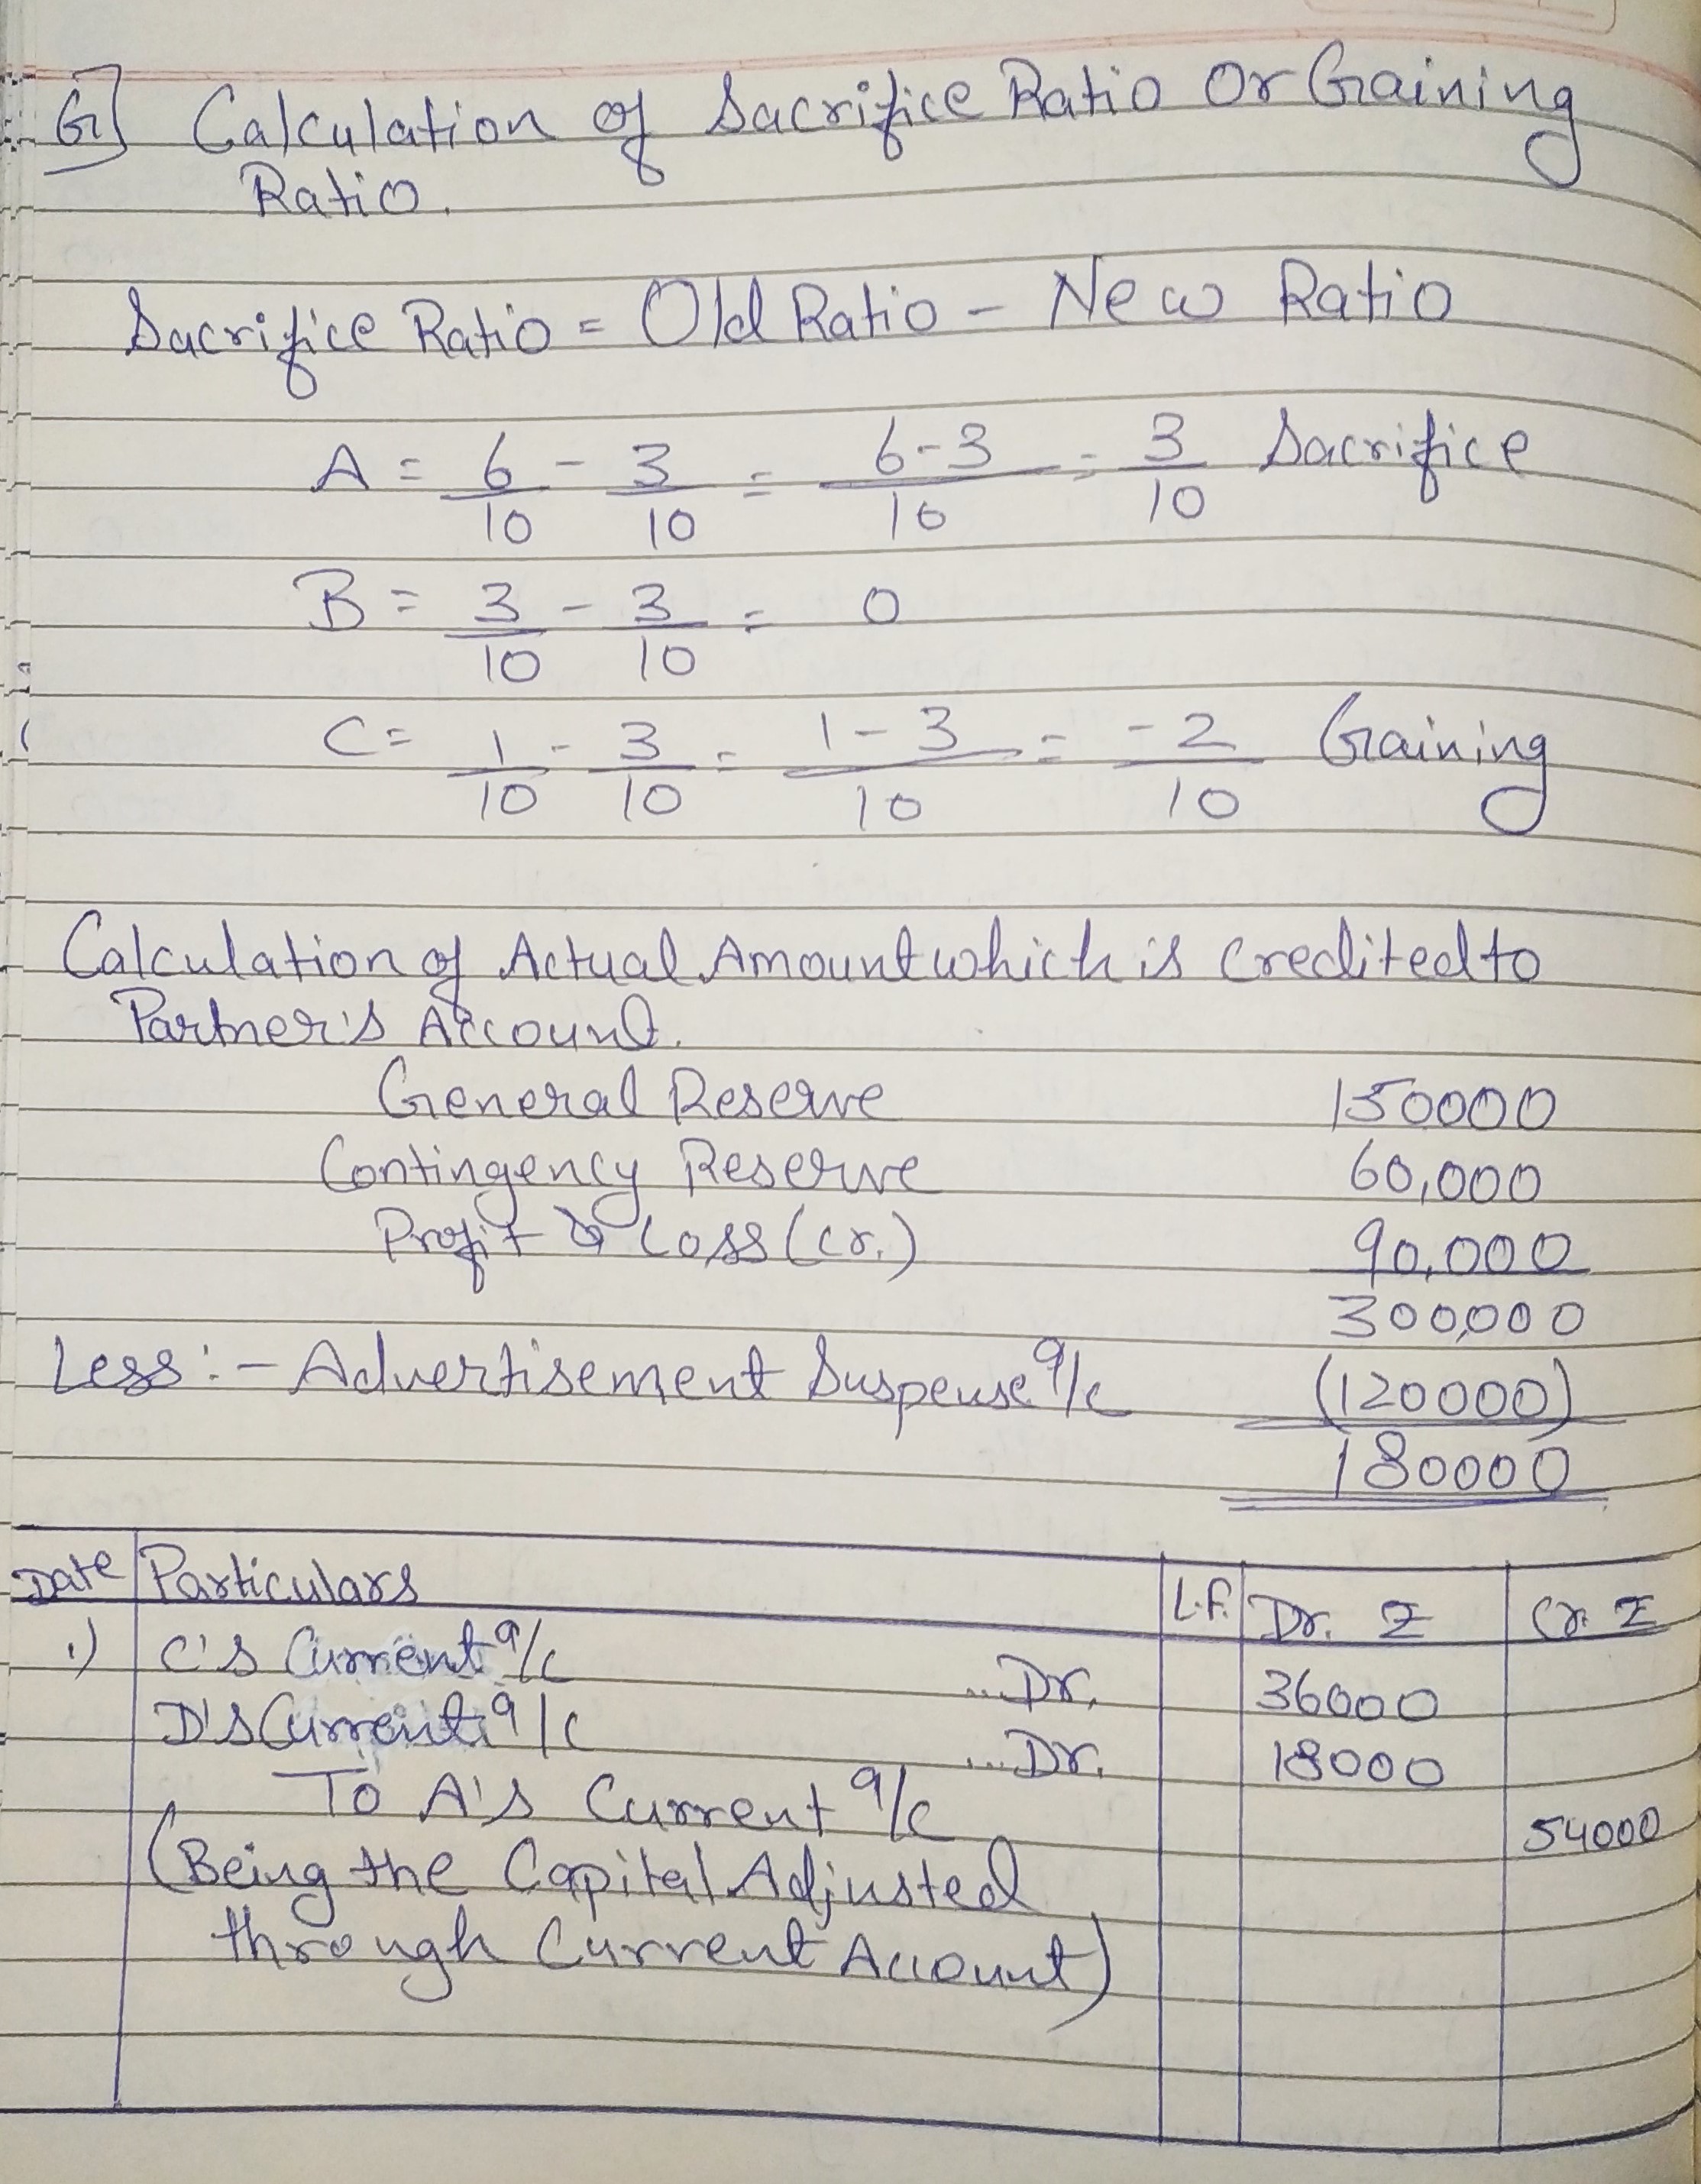 G] Calculation of Sacrifice Ratio Or Gaining
Ratio.
Sacrifice Ratio = Old Ratio - New Ratio
A = 6/10 - 3/10 = 6-3/10 = 3/10 Sacrifice
B = 3/10 - 3/10 = 0
C = 1/10 - 3/10 = 1-3/10 = -2/10 Gaining
Calculation of Actual Amount which is Credited to
Partner's Account.
General Reserve 150000
Contingency Reserve 60,000
Profit & Loss (Cr.) 90,000
300,000
Less:- Advertisement Suspense a/c (120000)
180000
Date Particulars L.F. Dr. ₹ Cr. ₹
1) C's Current a/c ...Dr. 36000
D's Current a/c ...Dr. 18000
To A's Current a/c 54000
(Being the Capital Adjusted
through Current Account)